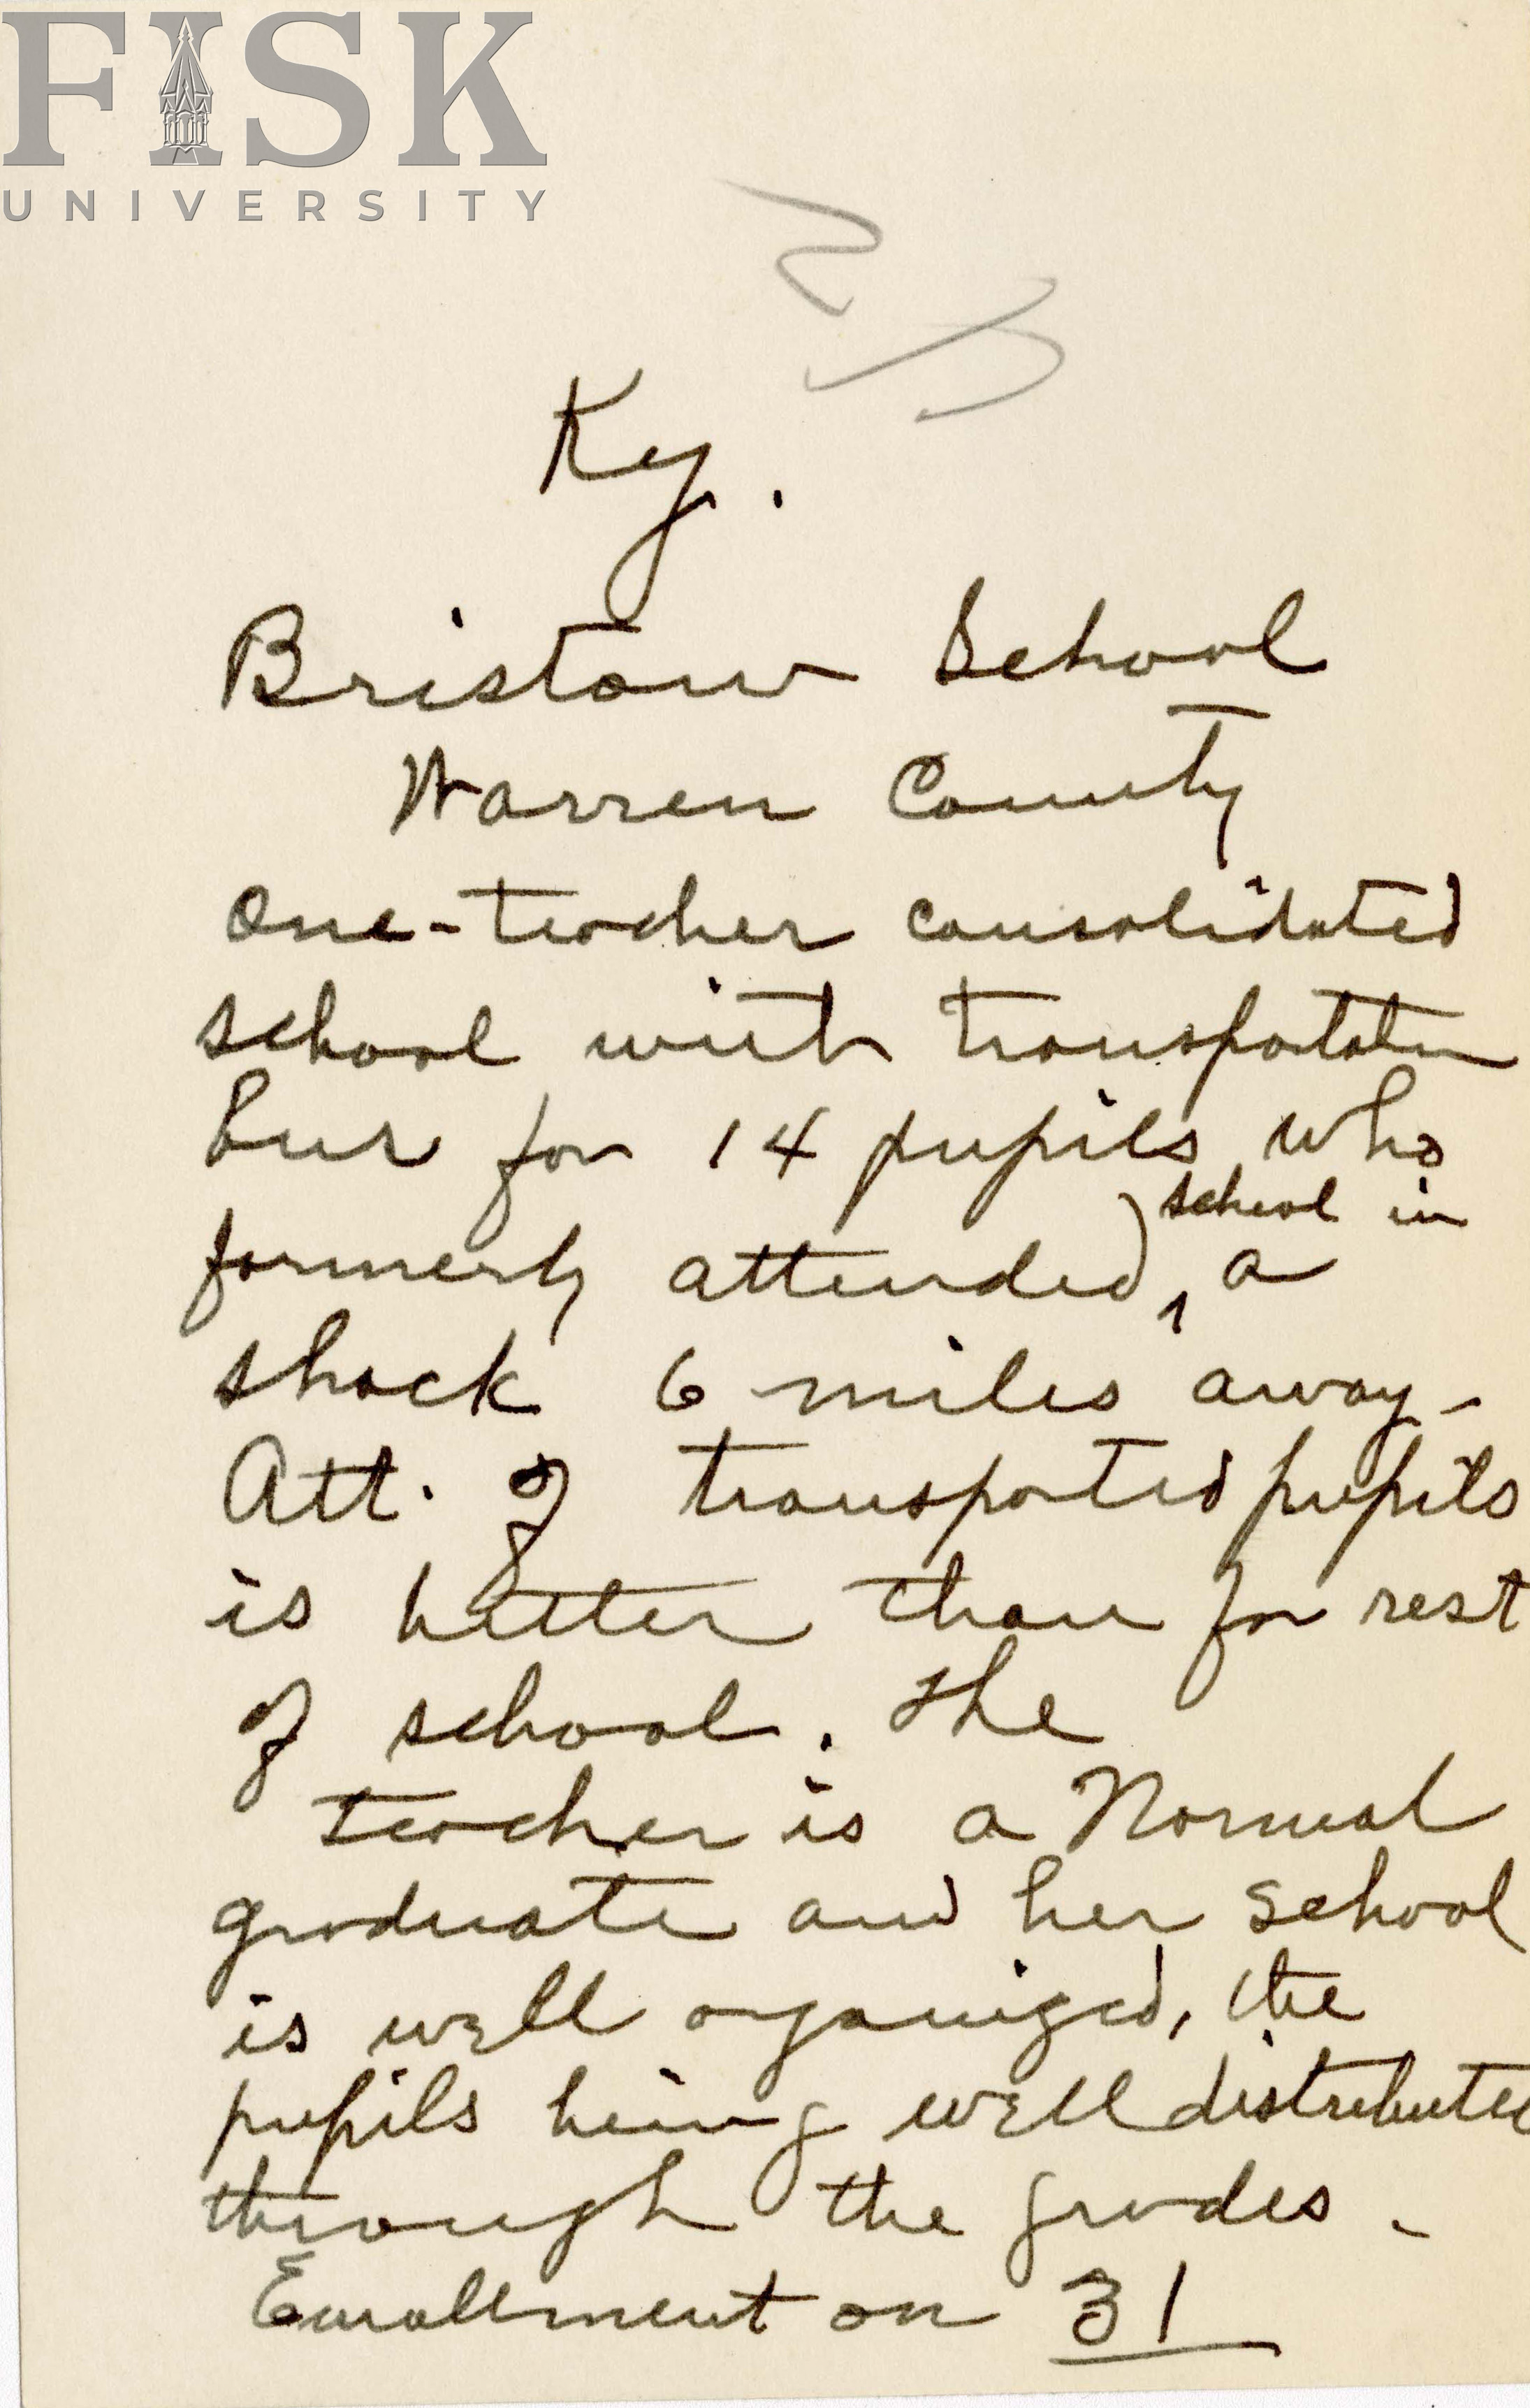 FISK
UNIVERSITY
Ky.
Bristow School
Warren County
One-teacher consolidated
school with transportation
bus for 14 pupils who
formerly attended, school in a
shack 6 miles away -
Att. of transported pupils
is better than for rest
of school. The
teacher is a Normal
graduate and her school
is well organized, the
pupils being well distributed
through the grades -
Enrollment on 31